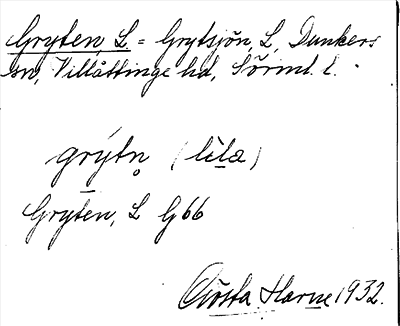 Gryten, L. = Grytsjön, L, Dunkers
sn, Villåttinge hd, Sörml. l.
grýtn̥ (lìla)
Gryten, L G66
Gösta Harne 1932.